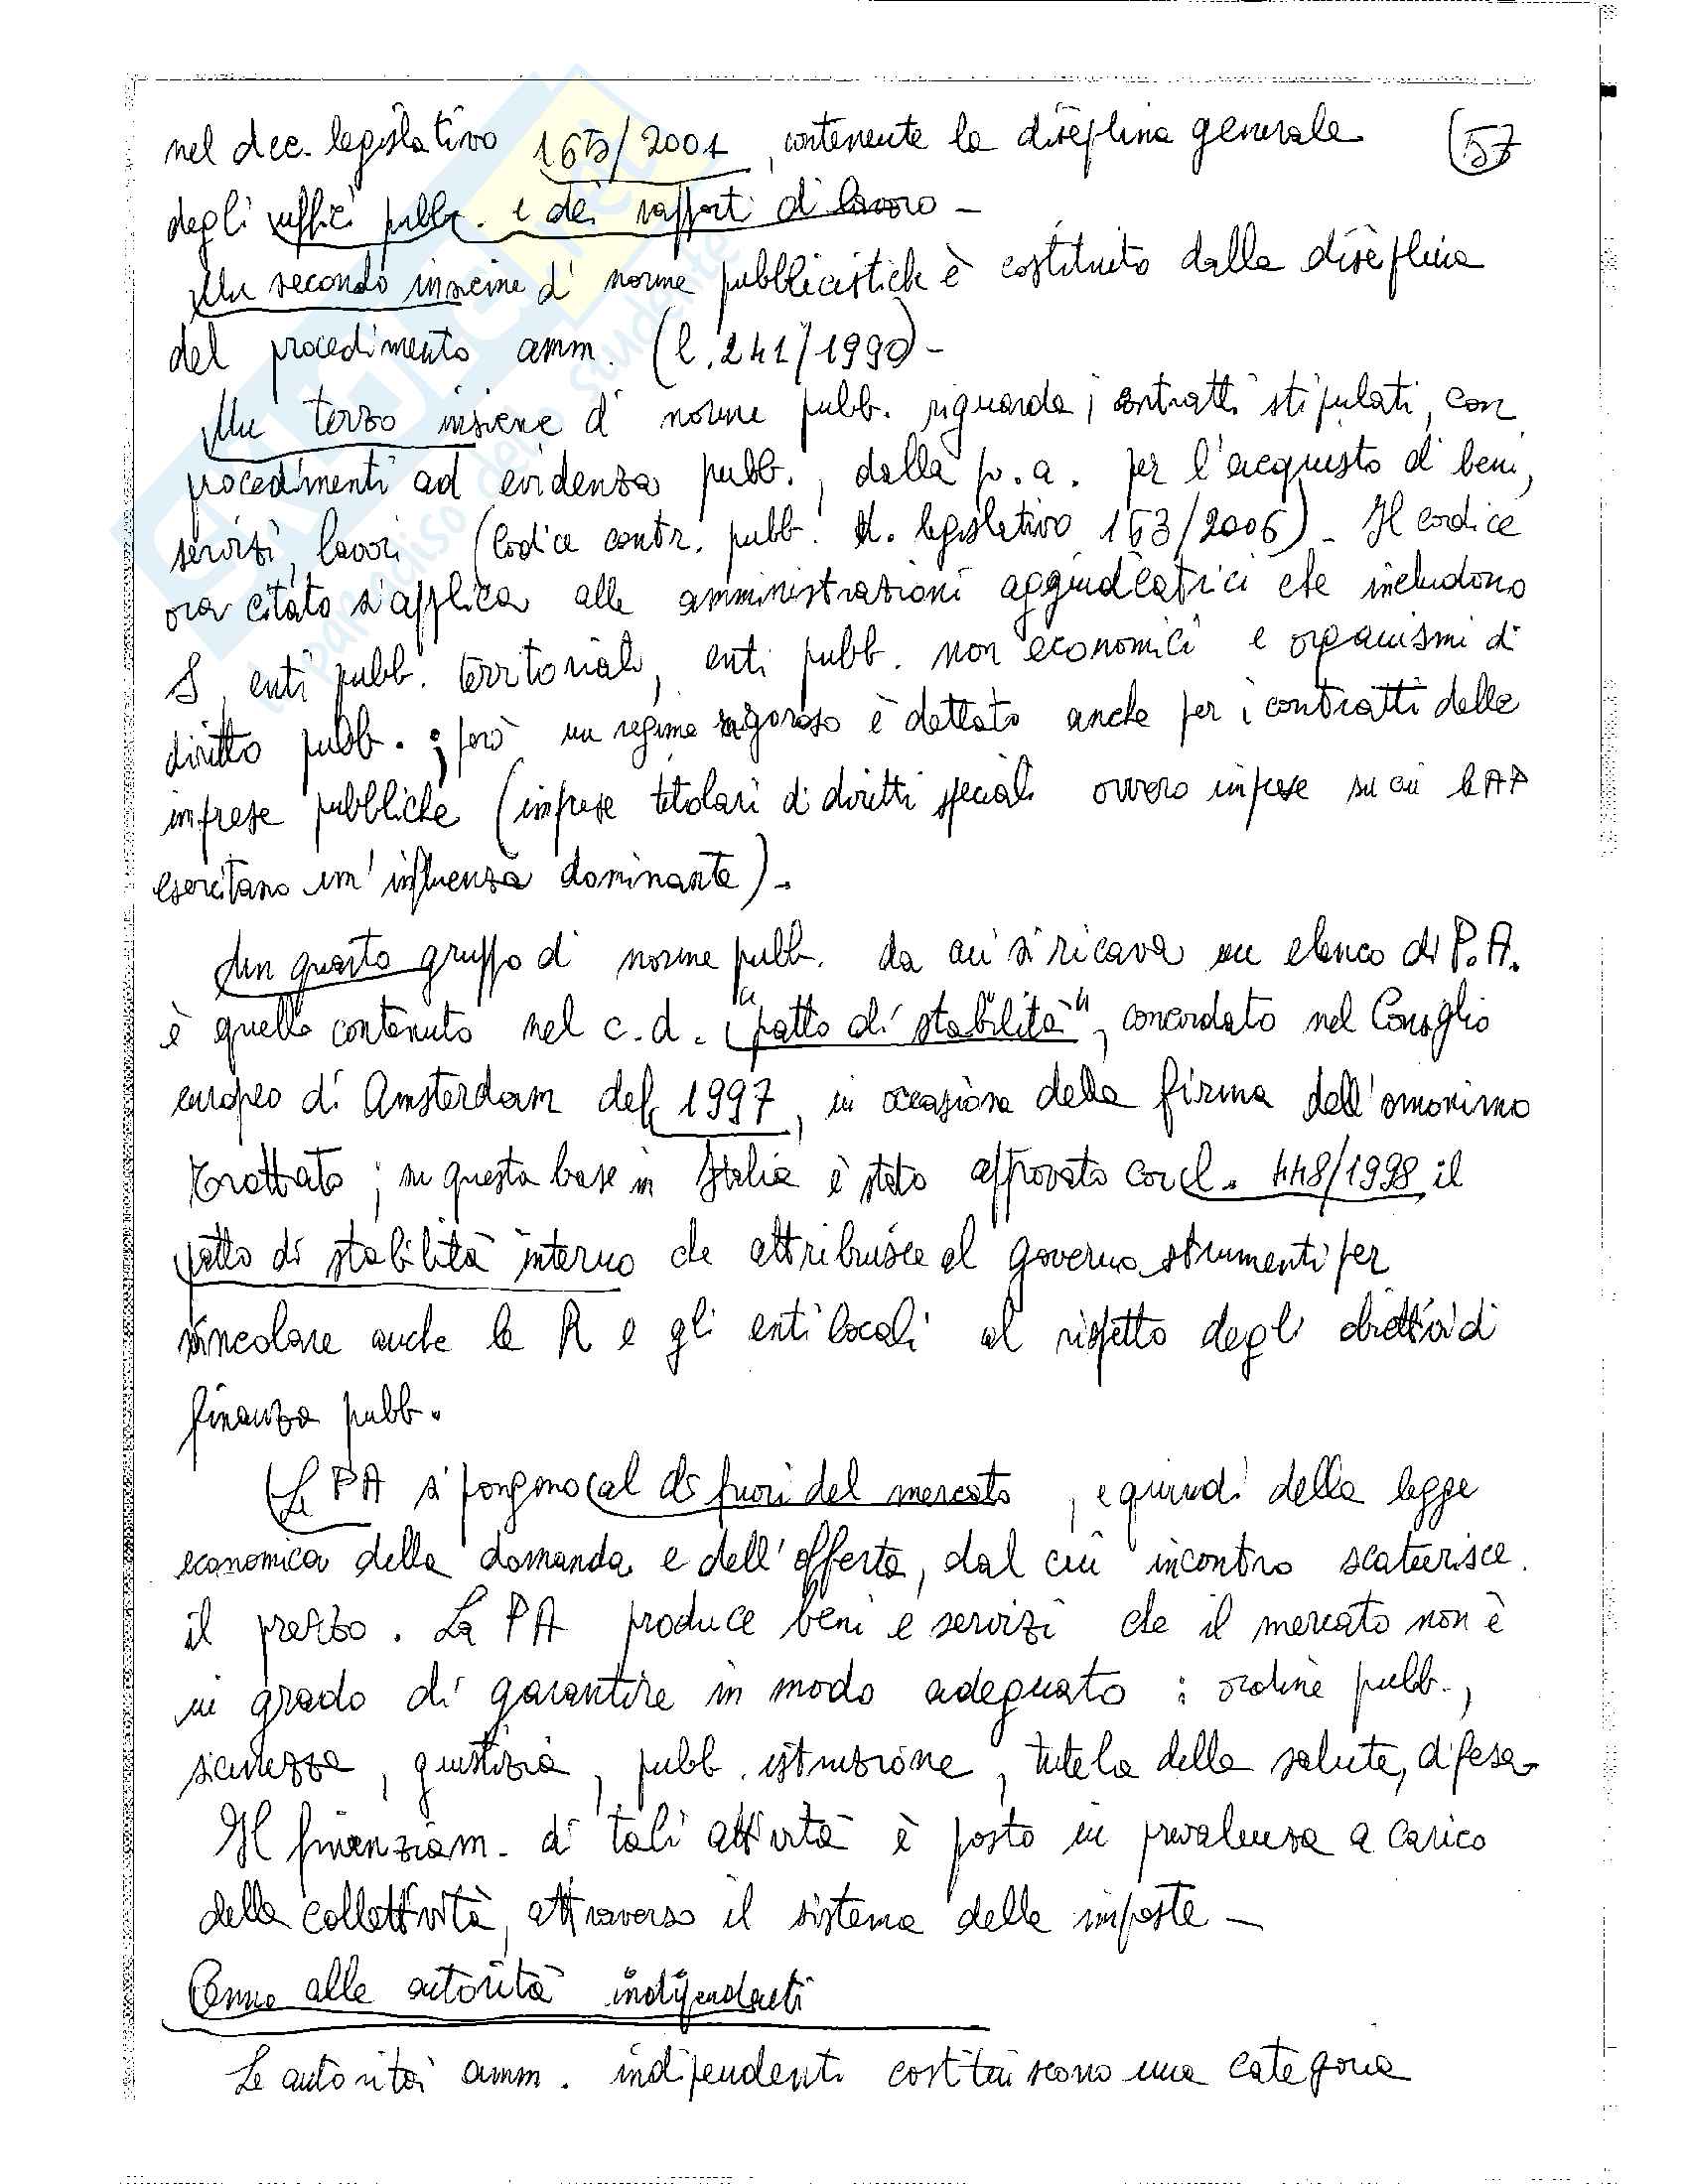 nel dec. legislativo 165/2001, contenente la disciplina generale
57
degli uffici pubbl. e dei rapporti di lavoro -
Un secondo insieme di norme pubblicistiche è costituito dalla disciplina
del procedimento amm. (l. 241/1990) -
Un terzo insieme di norme pubb. riguarda i contratti stipulati, con
procedimenti ad evidenza pubb., dalla p.a. per l'acquisto di beni,
servizi, lavori (Codice contr. pubb. d. legislativo 163/2006) - Il codice
ora citato s'applica alle amministrazioni aggiudicatrici che includono
S, enti pubb. territoriali, enti pubb. non economici e organismi di
diritto pubb. ; però un regime rigoroso è dettato anche per i contratti delle
imprese pubbliche (imprese titolari di diritti speciali ovvero imprese su cui le AP
esercitano un'influenza dominante) -
Un quarto gruppo di norme pubb. da cui si ricava un elenco di P.A.
è quello contenuto nel c.d. "patto di stabilità", concordato nel Consiglio
europeo di Amsterdam del 1997, in occasione della firma dell'omonimo
Trattato ; su questa base in Italia è stato approvato con l. 448/1998 il
patto di stabilità interno che attribuisce al governo strumenti per
vincolare anche le R e gli enti locali al rispetto degli obiettivi di
finanza pubb.
Le PA si pongono al di fuori del mercato, e quindi della legge
economica della domanda e dell'offerta, dal cui incontro scaturisce
il prezzo. La PA produce beni e servizi che il mercato non è
in grado di garantire in modo adeguato : ordine pubb.,
sicurezza, giustizia, pubb. istruzione, tutela della salute, difesa -
Il finanziam. di tali attività è posto in prevalenza a carico
della collettività, attraverso il sistema delle imposte -
Cenno alle autorità indipendenti
Le autorità amm. indipendenti costituiscono una categoria